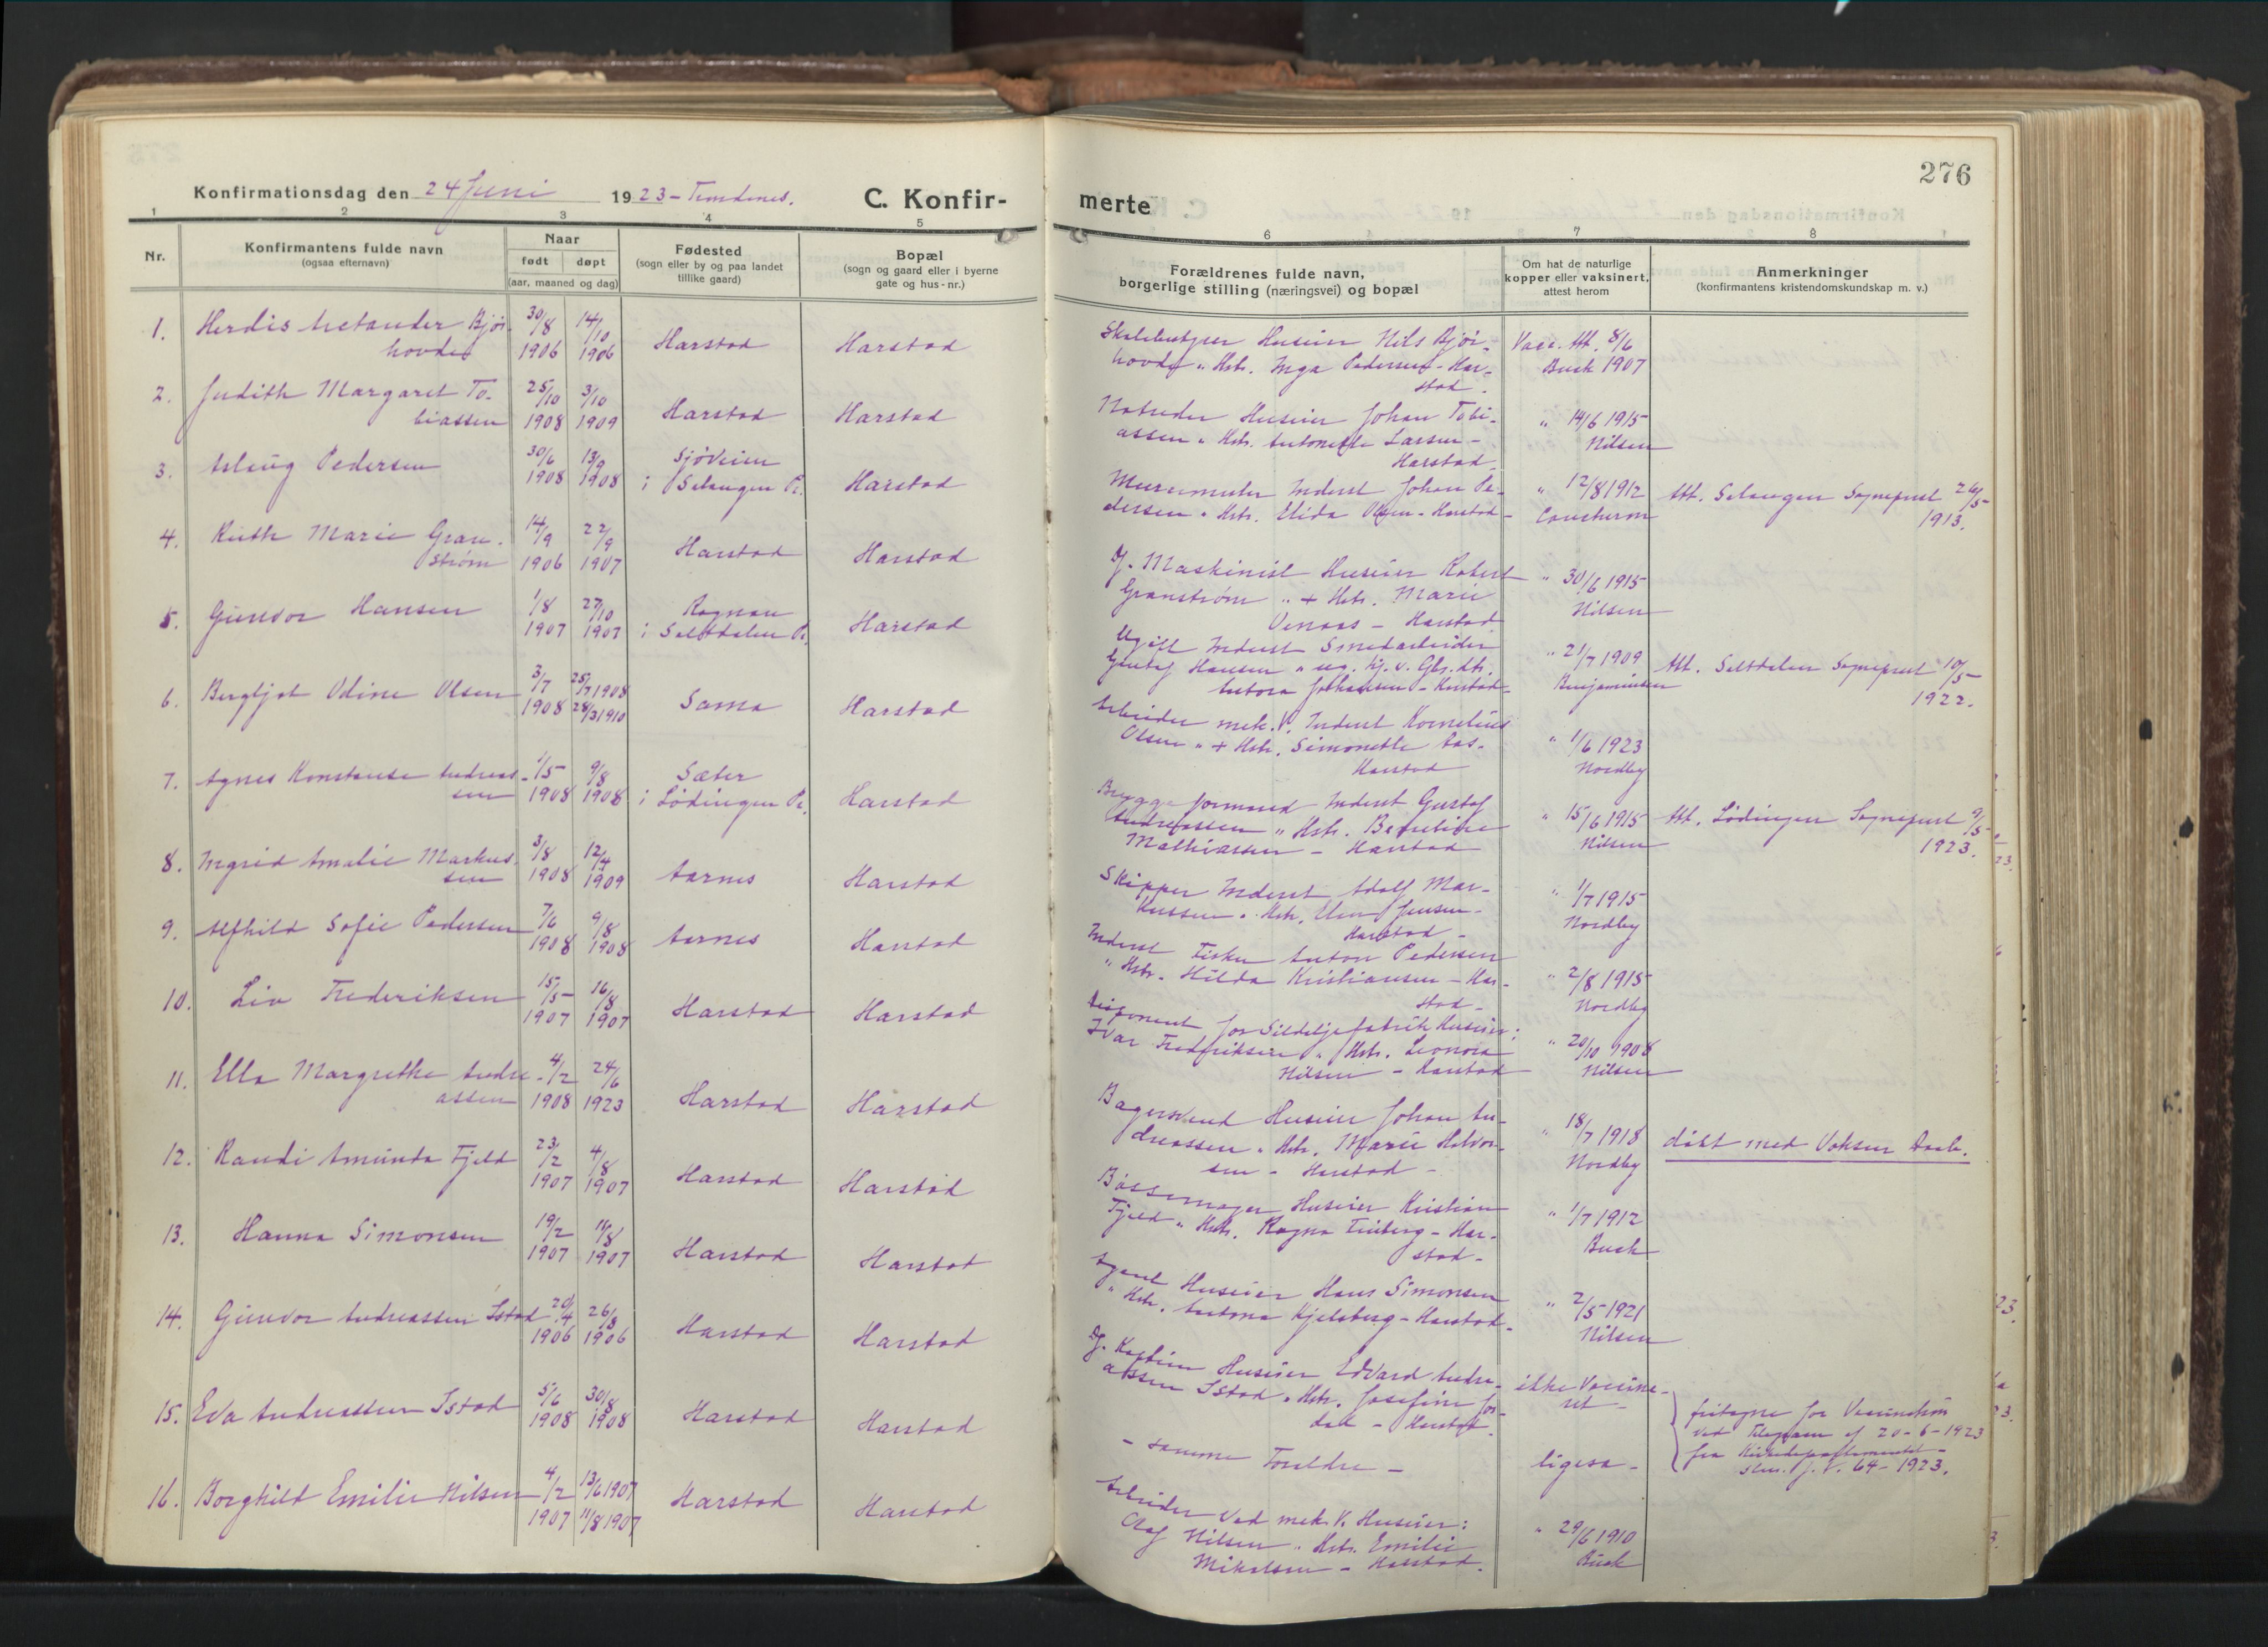 276
Konfirmationsdag den 24 Juni 1923 - Trondenes.
C. Konfirmerte
1 2 3 4 5 6 7 8
Nr.
Konfirmantens fulde navn
(ogsaa efternavn)
Naar
født døpt
(aar, maaned og dag)
Fødested
(sogn eller by og paa landet
tillike gaard)
Bopæl
(sogn og gaard eller i byerne
gate og hus-nr.)
Forældrenes fulde navn,
borgerlige stilling (næringsvei) og bopæl
Om hat de naturlige
kopper eller vaksinert,
attest herom
Anmerkninger
(konfirmantens kristendomskundskap m. v.)
1. Herdis Bjør-
hovde 30/8 1906 14/10 1906 Harstad Harstad
Huseier Nils Bjør-
hovde " Hstr. Inga Pedersen - Har-
stad.
Vacc. Att. 8/6
Busk 1907
2. Judith Margaret To-
biassen 25/10 1908 3/10 1909 Harstad Harstad
Huseier Johan Tobi-
assen " Hstr. Antonette Larsen -
Harstad.
" 14/6 1915
Nilsen
3. Aslaug Pedersen 30/6 1908 13/9 1908 Sjøveien
i Salangen Pr. Harstad
Murermester Inderst Johan Pe-
dersen " Hstr. Elida Olsen - Harstad -
" 12/8 1912
Att. Salangen Sogneprest 26/5
1913.
4. Ruth Marie Gran-
strøm 14/9 1906 22/9 1907 Harstad Harstad
Maskinist Huseier Robert
Granstrøm " + Hstr. Marie
Venaas - Harstad
" 30/6 1915
Nilsen
5. Gunvor Hansen 1/8 1907 27/10 1907 Rognan
i Saltdalen Pr. Harstad
Ugift Inderst Smedarbeider
Gustaf Hansen " ug. Pj. v. Gbr. dtr.
Antora Johansen - Harstad -
" 21/7 1909
Benjaminsen
Att. Saltdalen Sogneprest 10/5
1922.
6. Bergljot Odine Olsen 3/7 1908 25/7 1908
28/3 1910 Sama Harstad
Arbeider mek. V. Inderst Kornelius
Olsen " + Hstr. Simonette Aas -
Harstad
" 1/6 1923
Nordby
7. Agnes Konstanse Andreas-
sen 1/5 1908 9/8 1908 Sæter
i Lødingen Pr. Harstad
Brygge formand Inderst Gustaf
Andreassen " Hstr. Beretine
Mathiassen - Harstad
" 15/6 1915
Nilsen
Att. Lødingen Sogneprest 9/5
1923.
8. Ingrid Amalie Markus-
sen 3/8 1908 12/4 1909 Aarnes Harstad
Skipper Inderst Adolf Mar-
kussen " Hstr. Elen Jensen -
Harstad -
" 1/7 1915
Nordby
9. Alfhild Sofie Pedersen 7/6 1908 9/8 1908 Aarnes Harstad
Inderst Fisker Anton Pedersen
" Hstr. Hilda Kristiansen - Har-
stad -
" 2/8 1915
Nordby
10. Liv Frederiksen 15/5 1907 16/8 1907 Harstad Harstad
Disponent for Sildoljefabrik Huseier:
Ivar Fredriksen " Hstr. Leonora
Nilsen - Harstad
" 20/10 1908
Nilsen
11. Ella Margrethe Andre-
assen 4/2 1908 24/6 1923 Harstad Harstad
Bagersvend Huseier Johan An-
dreassen " Hstr. Marie Halvor-
sen - Harstad -
" 18/7 1918
Nordby
døbt med Voksen Daab.
12. Randi Amunda Fjeld 23/2 1907 4/8 1907 Harstad Harstad
Bøssemager Huseier Kristian
Fjeld " Hstr. Ragna Finberg - Har-
stad -
" 1/7 1912
Busk
13. Hanna Simonsen 19/2 1907 11/8 1907 Harstad Harstad
Agent Huseier Hans Simonsen
" Hstr. Antona Kjelsberg - Harstad -
" 2/5 1921
Nilsen
14. Gunvor Andreassen Istad 20/4 1906 26/8 1906 Harstad Harstad
Huseier Edvard Andre-
assen Istad " Hstr. Josefine Jor-
dal - Harstad.
ikke Vaccine-
ret -
15. Eva Andreassen Istad 5/6 1908 30/8 1908 Harstad Harstad
- samme Foreldre -
ligesa -
fritagne for Vaccination
ved Telegram af 20-6-1923
fra Kirkedepartementet -
J. N. 64 - 1923.
16. Borghild Emilie Nilsen 4/2 1907 13/6 1907
11/8 1907 Harstad Harstad
Arbeider ved mek. V. Huseier:
Olaf Nilsen " Hstr. Emilie
Mikalsen - Harstad.
" 29/6 1910
Busk